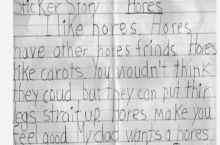 Sticker Story Hores
I like hores. Hores
have other hores frinds. Hores
like carots. You woudn't think
they coud but they can put thir
legs strait up. hores make you
feel good. My dad wants a hores.